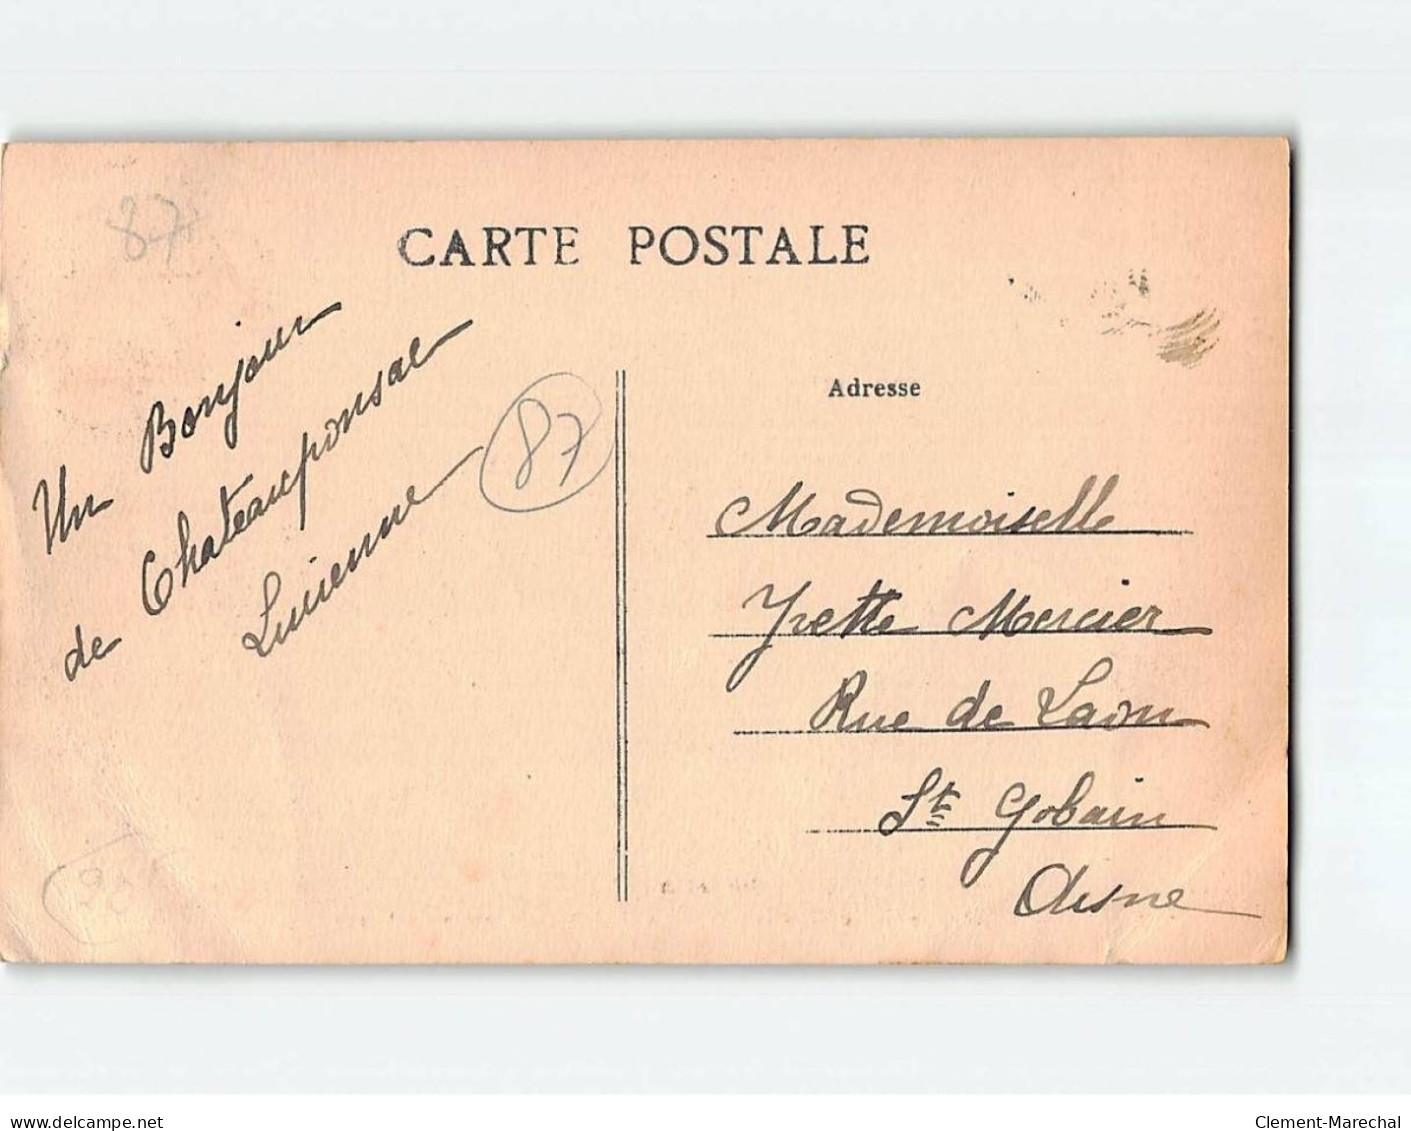 87
CARTE POSTALE
Un Bonjour
de Chateauponsac
Lucienne
87
Adresse
Mademoiselle
Yvette Mercier
Rue de Laon
St Gobain
Aisne
www.delcampe.net
Clement-Marechal